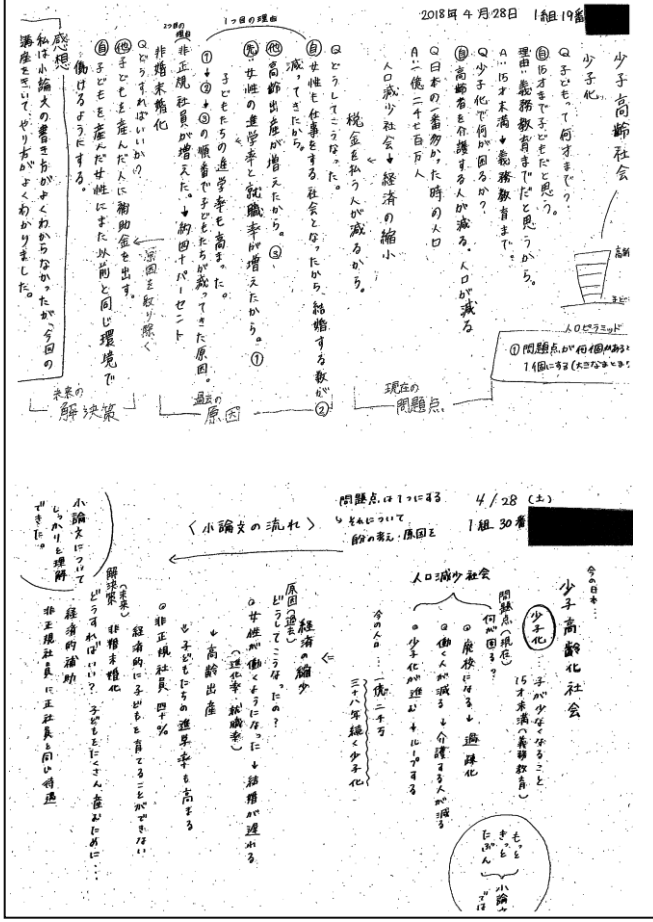 2018年4月28日 1組19番
少子高齢社会
少子化
高齢
子ども
人口ピラミッド
①問題点が何個かあると
1個にする(大きなまとま
Q子どもって何才まで?
自15才まで子どもだと思う。
理由:義務教育までだと思うから。
A:15才未満→義務教育まで。
Q少子化で何が困るか?
自高齢者を介護する人が減る、人口が減る
Q日本の一番多かった時の人口
A:一億二千七百万人
人口減少社会→経済の縮小
税金を払う人が減るから。
Qどうしてこうなった。
自女性も仕事をする社会となったから、結婚する数が
減ってきたから。②
他高齢出産が増えたから。③
先女性の進学率と就職率が増えたから。①
子どもたちの進学率も高まった。
①→②→③の順番で子どもたちが減ってきた原因。
1つ目の理由
2つ目の理由
非正規社員が増えた。→約四十パーセント
非婚未婚化
原因を取り除く
Qどうすればいいか?
他子どもを産んだ人に補助金を出す。
自子どもを産んだ女性にまた以前と同じ環境で
働けるようにする。
感想
私は小論文の書き方がよくわからなかったが、今回の
講座をきいてやり方がよくわかりました。
現在の
問題点
過去の
原因
未来の
解決策
4/28(土)
1組30番
問題点は1つにする
それについて
自分の考え、原因を
〈小論文の流れ〉
今の日本…
少子高齢化社会
少子化…子が少なくなること
15才未満(義務教育)
問題点(現在)
何が困る?
廃校になる→過疎化
働く人が減る→介護する人が減る
少子化が進む→ループする
人口減少社会
今の人口…一億二千万
三十八年続く少子化
経済の縮少
原因(過去)
どうしてこうなったの?
女性が働くようになった→結婚が遅れる
(進化率・就職率)
→高齢出産
子どもたちの進学率も高まる
非正規社員 四十%
経済的に子どもを育てることができない
非婚未婚化
解決策(未来)
どうすればいい?子どもをたくさん産むために…
経済的補助
非正規社員に正社員と同い待遇
小論文について
しっかりと理解
できた。
もっと
きっと
たぶん
小論文
では